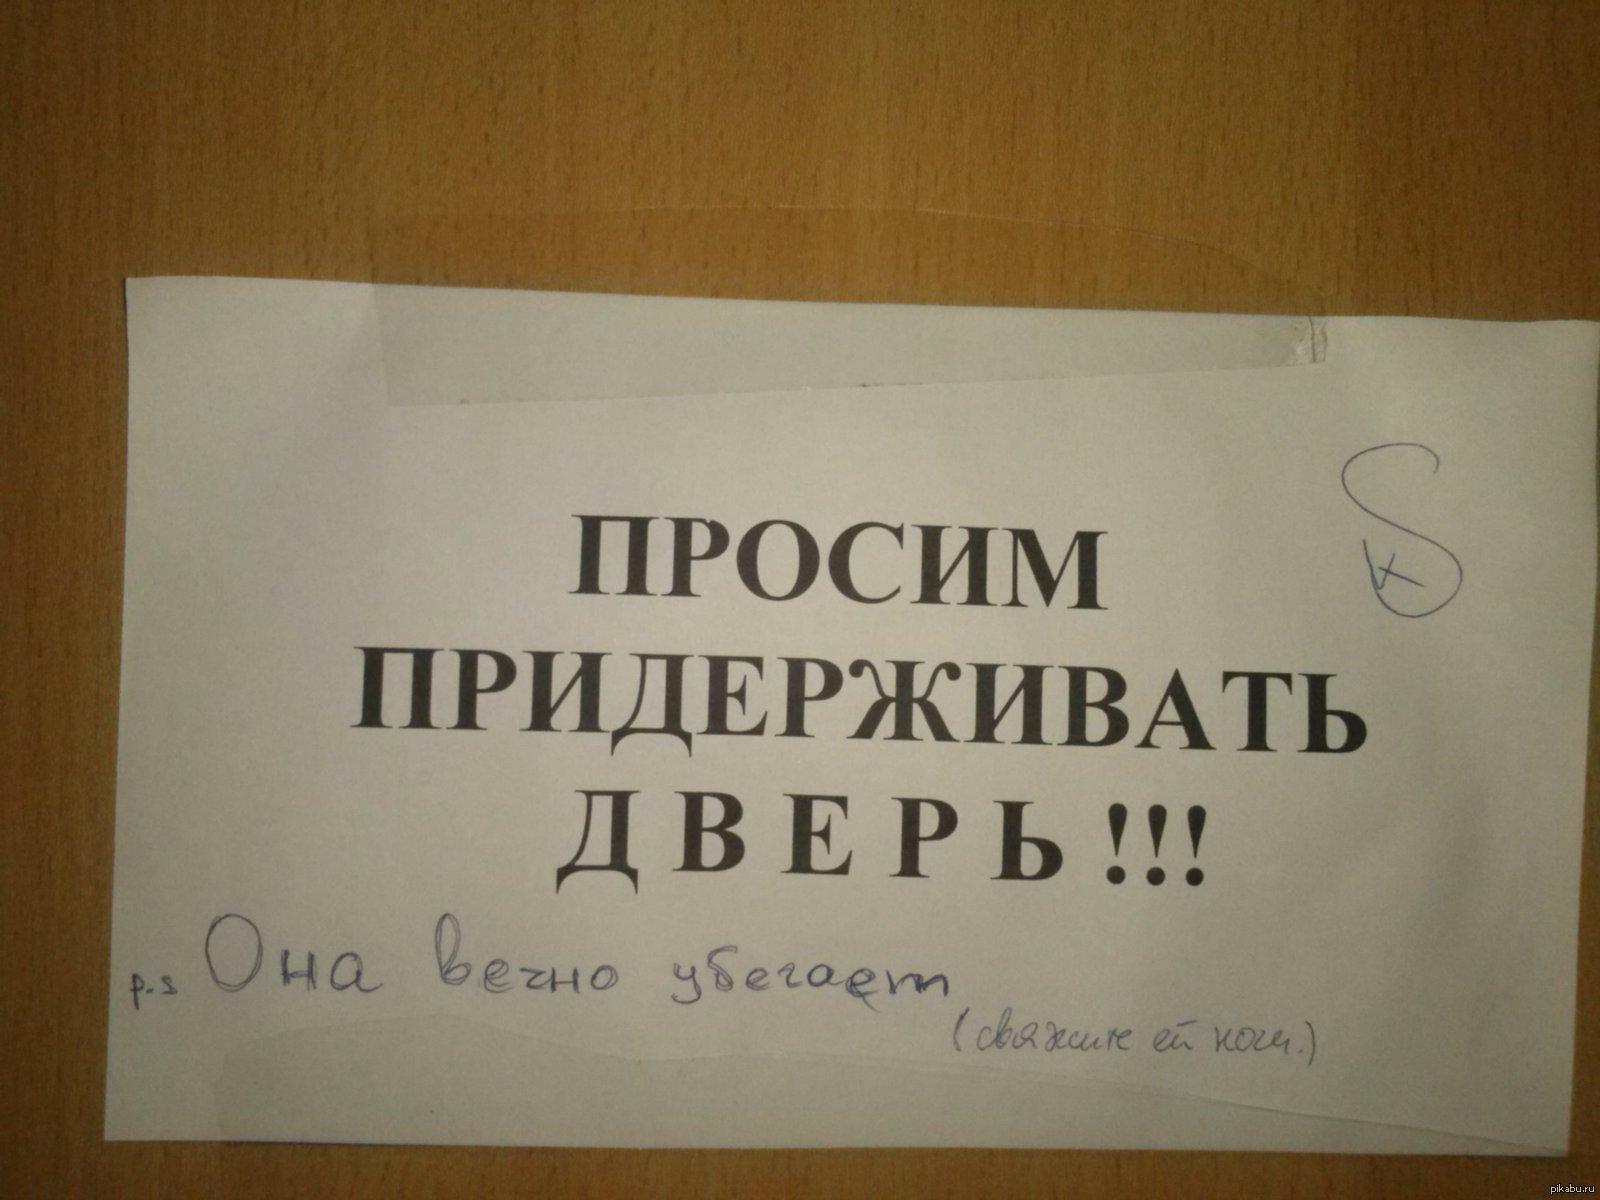 ПРОСИМ
ПРИДЕРЖИВАТЬ
ДВЕРЬ!!!
p.s Она вечно убегает
(свяжите ей ноги.)
pikabu.ru